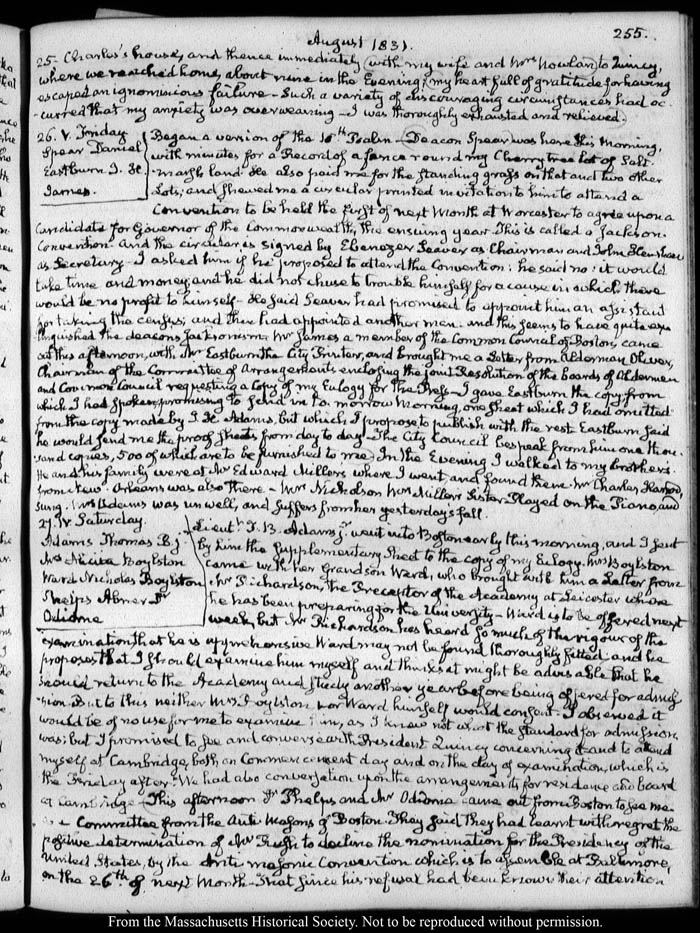 255.
August 1831.
25. Charles's house, and thence immediately (with my wife and Mrs Nowlan) to Quincy,
where we reached home, about nine in the Evening; my heart full of gratitude for having
escaped an ignominious failure - Such a variety of discouraging circumstances had oc-
-curred that my anxiety was overweening - I was thoroughly exhausted and relieved.
26. V. Friday
Spear Daniel
Eastburn J. H.
James.
Began a version of the 16th Psalm - Deacon Spear was here this Morning,
with minutes for a Record of a fence round my Cherry tree lot of Salt-
marsh land. He also paid me for the standing grass on that and two other
Lots; and shewed me a circular printed invitation to him to attend a
Convention to be held the first of next Month at Worcester to agree upon a
Candidate for Governor of the Commonwealth, the ensuing year. This is called a Jackson
Convention and the circular is signed by Ebenezer Seaver as Chairman and John Henshaw
as Secretary - I asked him if he proposed to attend the Convention: he said no: it would
take time and money, and he did not chuse to trouble himself for a cause in which there
would be no profit to himself - He said Seaver had promised to appoint him an assistant
for taking the census; and then had appointed another man. and this seems to have quite ex-
tinguished the deacons Jacksonism. Mr James a member of the Common Council of Boston, came
out this afternoon, with Mr Eastburn the City Printer, and brought me a Letter from Alderman Oliver,
Chairman of the Committee of Arrangements enclosing the joint Resolution of the Boards of Aldermen
and Common Council requesting a Copy of my Eulogy for the Press - I gave Eastburn the copy from
which I had spoken, promising to send in to-morrow Morning, one sheet which I had omitted
from the copy made by I. H. Adams, but which I propose to publish with the rest. Eastburn said
he would send me the proof sheets from day to day - The City Council bespeak from him one thou-
sand copies, 500 of which are to be furnished to me. In the Evening I walked to my brothers.
He and his family were at Mr Edward Millers where I went and found them. Mr Charles
from New Orleans was also there - Mrs Nicholson Mrs Millers Sister played on the Piano, and
sung. Mrs Adams was unwell, and suffers from her yesterday's fall.
27. IV. Saturday.
Adams Thomas B. j
Mrs Alicia Boylston
Ward Nicholas Boylston
Phelps Abner Dr
Odiorne
Lieutt T. B. Adams jr went into Boston early this morning, and I sent
by him the Supplementary Sheet to the copy of my Eulogy. Mrs Boylston
came with her Grandson Ward, who brought with him a Letter from
Mr Richardson, the Preceptor of the Academy at Leicester where
he has been preparing for the University - Ward is to be offered next
week, but Mr Richardson has heard so much of the rigour of the
examination that he is apprehensive Ward may not be found thoroughly fitted and he
proposes that I should examine him myself and thinks it might be advisable that he
should return to the Academy and study another year before being offered for admis-
sion. But to this neither Mrs Boylston nor Ward himself would consent. I observed it
would be of no use for me to examine him, as I knew not what the standard for admission
was; but I promised to see and converse with President Quincy concerning it and to attend
myself at Cambridge, both on Commencement day and on the day of examination, which is
the Friday after. We had also conversation upon the arrangements for residence and board
at Cambridge - This afternoon Dr Phelps and Mr Odiorne came out from Boston to see me
as a Committee from the Anti Masons of Boston. They said they had learnt with regret the
positive determination of Mr Rush to decline the nomination for the Presidency of the
United States, by the Anti masonic Convention which is to assemble at Baltimore,
on the 26th of next Month - That since his refusal had been known their attention
From the Massachusetts Historical Society. Not to be reproduced without permission.